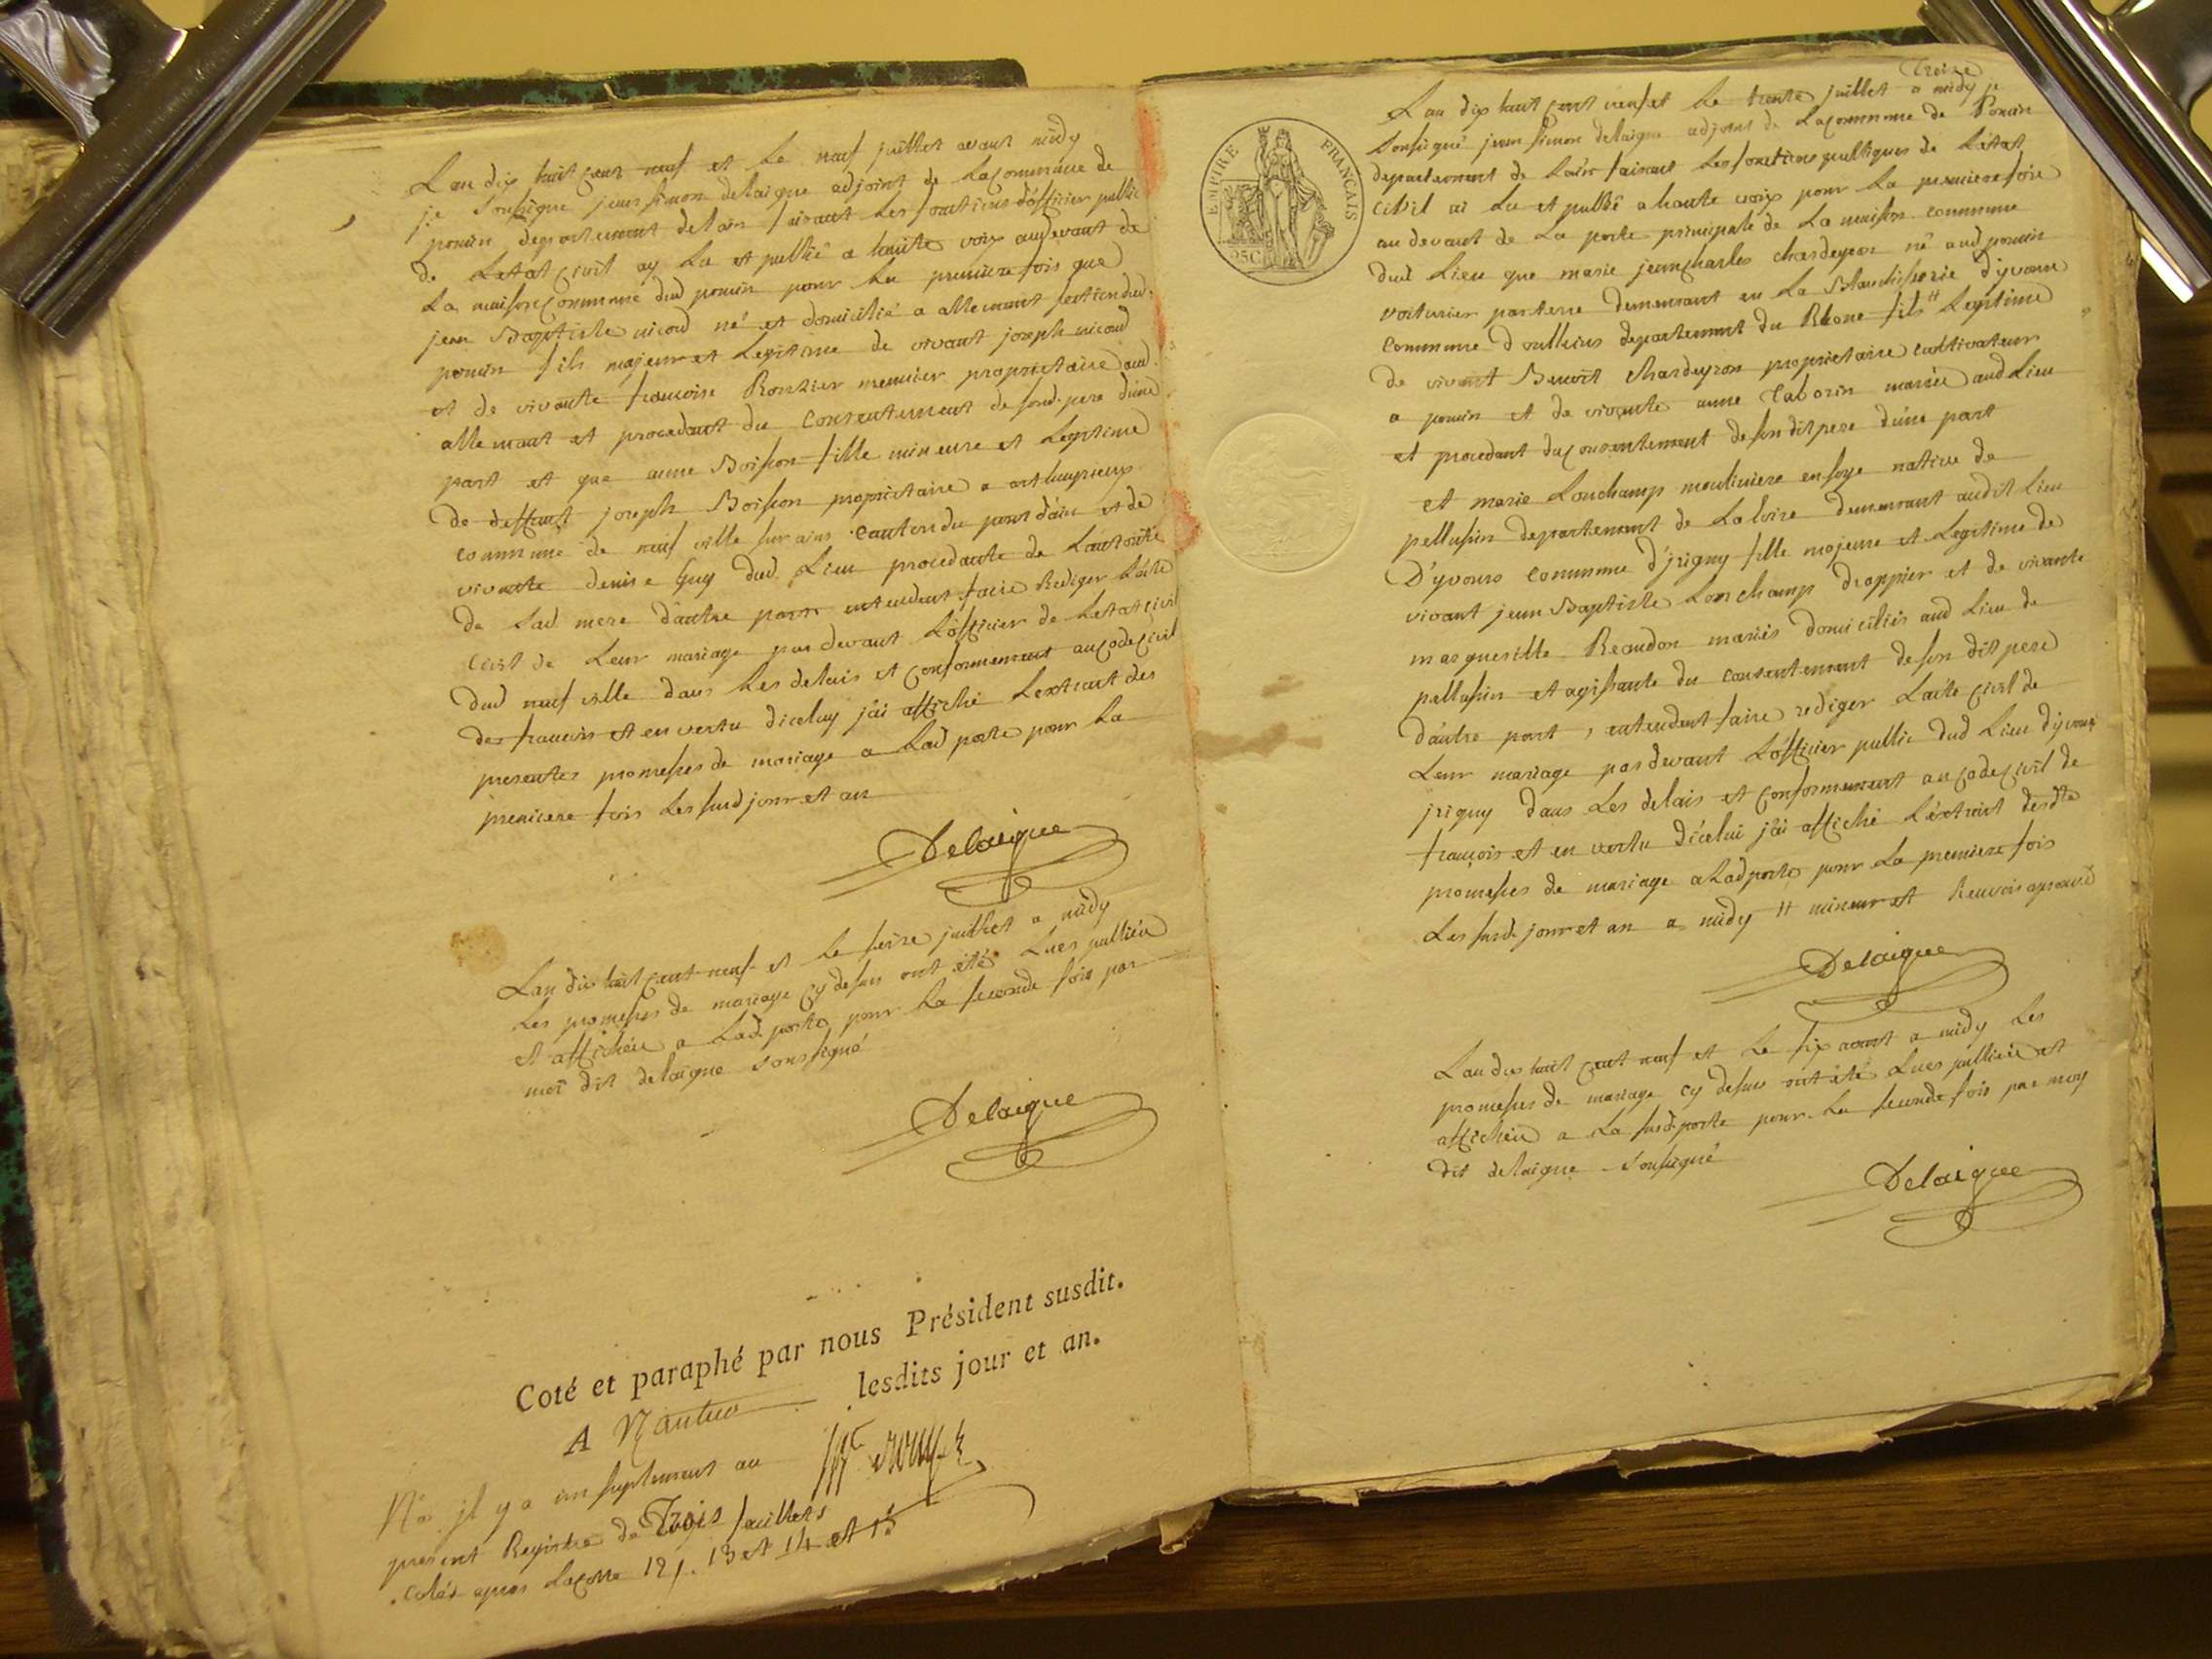 Lan dix huit cent neuf et le neuf juillet avant midy
je soussigné jean simon delaigue adjoint de la commune de
poncin departement de lain faisant les fonctions d'officier public
de Letat civil ay lu et publié a haute voix audevant de
La maison commune dud poncin pour la premiere fois que
jean Baptiste nicoud né et domicilié a allemant section dud.
poncin fils majeur et legitime de vivant joseph nicoud
et de vivante francoise Ronzier meunier proprietaire aud.
allemant et procedant du consentement de sond. pere d'une
part et que anne Boisson fille mineure et legitime
de deffunt joseph Boisson proprietaire a
commune de neuf ville sur ains canton du pont d'ain et de
vivante denise Guy dud. Lieu procedante de Lautorité
de sad mere d'autre part entendent faire Rediger Lacte
civil de Leur mariage par devant L'officier de Letat civil
dud neuf ville dans les delais et conformement au code civil
des francois et en vertu diceluy j'ai affiché Lextrait des
presentes promesses de mariage a Lad porte pour La
premiere fois les susd jour et an
Delaigue
Lan dix huit cent neuf et le seize juillet a midy
Les promesses de mariage cy dessus ont été Lues publiées
et affichées a Lad. porte pour La seconde fois par
moi dit delaigue soussigné
Delaigue
Coté et paraphé par nous Président susdit.
A Nantua lesdits jour et an.
Na. il y a un suplement au
present Registre de Trois feuillets
cotés apres La cotte 12, 13 et 14 et 15
Treize
Lan dix huit cent neuf et le trente juillet a midy je
soussigné jean simon delaigue adjoint de La commune de Poncin
departement de L'ain faisant les fonctions publiques de L'état
civil ai Lu et publié a haute voix pour La premiere fois
au devant de La porte principale de La maison commune
dud Lieu que marie jean charles chardeyron né aud poncin
voiturier par terre demeurant en La Blanchisserie d'yvours
commune d'oullins departement du Rhone fils # Legitime
de vivant Benoit Chardeyron proprietaire cultivateur
a poncin et de vivante anne Taborin mariés aud Lieu
et procedant du consentement de son dit pere d'une part
et marie Lonchamp mouliniere en soye native de
pellussin departement de La loire demeurant audit Lieu
D'yvours commune d'jrigny fille majeure et Legitime de
vivant jean Baptiste Lonchamp drappier et de vivante
margueritte Reaudon mariés domiciliés aud Lieu de
pellussin et agissante du consentement de son dit pere
d'autre part, entendent faire rediger L'acte civil de
Leur mariage par devant L'officier public dud Lieu d'yvours
jrigny dans Les delais et conformement au code civil de
françois et en vertu d'icelui j'ai affiché L'extrait desdtes
promesses de mariage a Lad porte pour La premiere fois
Les susd. jour et an a midy # mineur et Renvoi aprouvé
Delaigue
Lan dix huit cent neuf et Le six aoust a midy Les
promesses de mariage cy dessus ont été Lues publiées et
affichées a La susd. porte pour La seconde fois par moy
dit delaigue soussigné
Delaigue
EMPIRE FRANÇAIS
25C